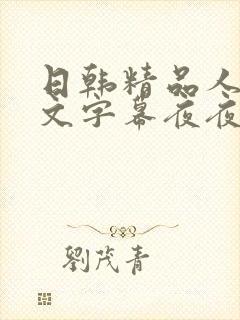 日韩精品人
文字幕夜夜
劉茂青